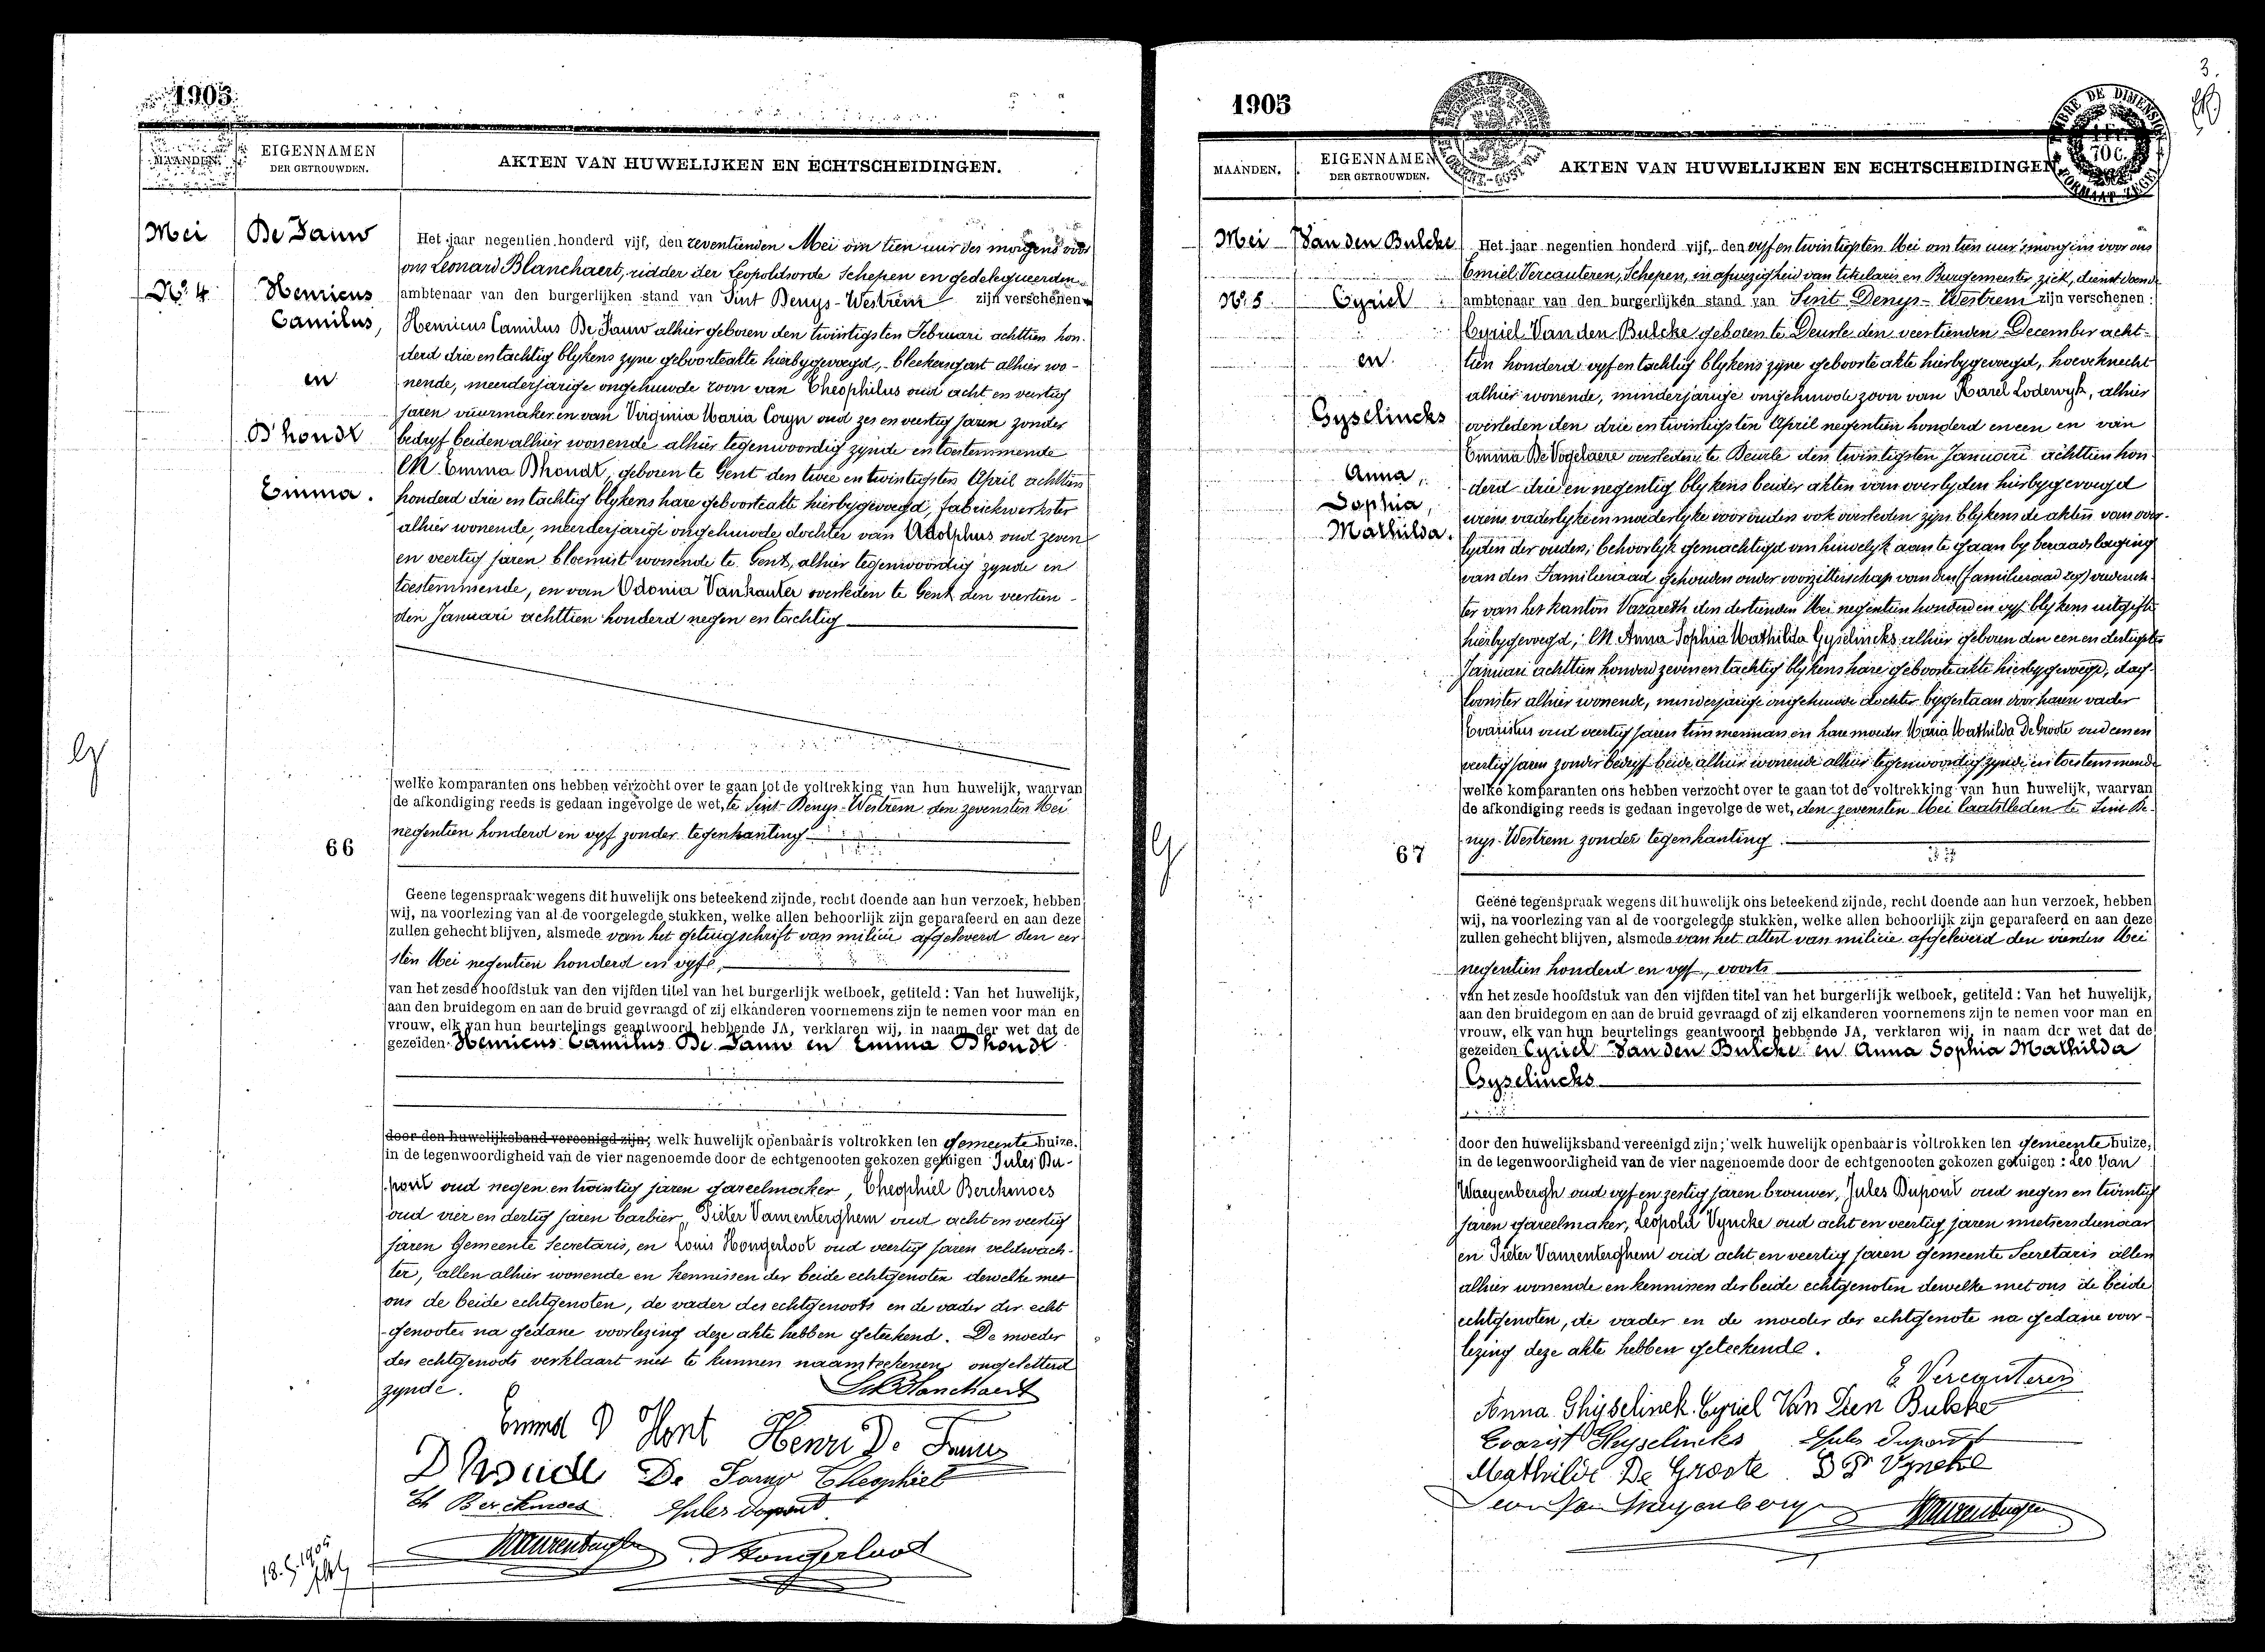 1905
MAANDEN.
EIGENNAMEN
DER GETROUWDEN.
AKTEN VAN HUWELIJKEN EN ECHTSCHEIDINGEN.
Mei
No. 4
De Fauw
Henricus
Camilus,
en
D'hondt
Emma.
Het jaar negentien honderd vijf, den zeventienden Mei om tien uur des morgens voor
ons Leonard Blanchaert, ridder der Leopoldsorde Schepen en gedelegueerden
ambtenaar van den burgerlijken stand van Sint Denys-Westrem zijn verschenen
Henricus Camilus De Fauw alhier geboren den twintigsten Februari achttien hon-
derd drie en tachtig blykens zyne geboorteakte hierbygevoegd, bleekersgast alhier wo-
nende, meerderjarige ongehuwde zoon van Theophilus oud acht en veertig
jaren vuurmaker en van Virginia Maria Coryn oud zes en veertig jaren zonder
bedryf beiden alhier wonende alhier tegenwoordig zynde en toestemmende
EN Emma Dhondt, geboren te Gent den twee en twintigsten April achttien
honderd drie en tachtig blykens hare geboorteakte hierbygevoegd, fabriekwerkster
alhier wonende, meerderjarige ongehuwde dochter van Adolphus oud zeven
en veertig jaren bloemist wonende te Gent, alhier tegenwoordig zynde en
toestemmende, en van Udonia Vanhauter overleden te Gent den veertien-
den Januari achttien honderd negen en tachtig
welke komparanten ons hebben verzocht over te gaan tot de voltrekking van hun huwelijk, waarvan
de afkondiging reeds is gedaan ingevolge de wet, te Sint-Denys-Westrem den zevensten Mei
negentien honderd en vyf zonder tegenkanting
66
Geene tegenspraak wegens dit huwelijk ons beteekend zijnde, recht doende aan hun verzoek, hebben
wij, na voorlezing van al de voorgelegde stukken, welke allen behoorlijk zijn geparafeerd en aan deze
zullen gehecht blijven, alsmede van het getuigschrift van milicie afgeleverd den eer-
sten Mei negentien honderd en vyf
van het zesde hoofdstuk van den vijfden titel van het burgerlijk wetboek, getiteld: Van het huwelijk,
aan den bruidegom en aan de bruid gevraagd of zij elkanderen voornemens zijn te nemen voor man en
vrouw, elk van hun beurtelings geantwoord hebbende JA, verklaren wij, in naam der wet dat de
gezeiden Henricus Camilus De Fauw en Emma Dhondt
door den huwelijksband vereenigd zijn; welk huwelijk openbaar is voltrokken ten gemeente huize.
in de tegenwoordigheid van de vier nagenoemde door de echtgenooten gekozen getuigen Jules Du-
pont oud negen en twintig jaren gareelmaker, Theophiel Berckmoes
oud vier en dertig jaren barbier, Pieter Vanrenterghem oud acht en veertig
jaren Gemeente Secretaris, en Louis Hongerloot oud veertig jaren veldwach-
ter, allen alhier wonende en kennissen der beide echtgenoten dewelke met
ons de beide echtgenoten, de vader des echtgenoots en de vader der echt
-genoote na gedane voorlezing deze akte hebben geteekend. De moeder
des echtgenoots verklaart niet te kunnen naamteekenen ongeletterd
zynde.
Blanchaert
Emma D Hont Henri De Fauw
De Fauw Theophiel
Th Berckmoes Jules Dupont
Vanrenterghem D Hongerloot
18.5.1905
1905
3.
TIMBRE DE DIMENSION
1 Fr.
70 C.
FORMAAT ZEGEL
MAANDEN.
EIGENNAMEN
DER GETROUWDEN.
AKTEN VAN HUWELIJKEN EN ECHTSCHEIDINGEN
Mei
No. 5
Van den Bulcke
Cyriel
en
Gyselincks
Anna,
Sophia,
Mathilda.
Het jaar negentien honderd vijf, den vyf en twintigsten Mei om tien uur 's morgens voor ons
Emiel Vercauteren, Schepen, in afwezigheid van titelaris en Burgemeester ziek, dienstdoende
ambtenaar van den burgerlijken stand van Sint Denys-Westrem zijn verschenen:
Cyriel Van den Bulcke geboren te Deurle den veertienden December acht-
tien honderd vyf en tachtig blykens zyne geboorte akte hierbygevoegd, hoeveknecht
alhier wonende, minderjarige ongehuwde zoon van Karel Lodewyk, alhier
overleden den drie en twintigsten April negentien honderd en een en van
Emma De Vogelaere overleden te Deurle den twintigsten Januari achttien hon-
derd drie en negentig blykens beider akten van overlyden hierbygevoegd
wiens vaderlyke en moederlyke voorouders ook overleden zyn blykens de akten van over-
lyden der ouders; behoorlyk gemachtigd om huwelyk aan te gaan by beraadslaging
van den Familieraad gehouden onder voorzitterschap van den (familieraad zeg) vrederech-
ter van het kanton Nazareth den dertienden Mei negentien honderd en vyf blykens uitgifte
hierbygevoegd; EN Anna Sophia Mathilda Gyselincks alhier geboren den een en dertigsten
Januari achttien honderd zeven en tachtig blykens hare geboorteakte hierbygevoegd, dag-
loonster alhier wonende, minderjarige ongehuwde dochter bygestaan door haren vader
Evaristus oud veertig jaren timmerman en hare moeder Maria Mathilda De Groote oud een en
veertig jaren zonder bedryf beide alhier wonende alhier tegenwoordig zynde en toestemmende
welke komparanten ons hebben verzocht over te gaan tot de voltrekking van hun huwelijk, waarvan
de afkondiging reeds is gedaan ingevolge de wet, den zevensten Mei laatstleden te Sint De-
nys-Westrem zonder tegenkanting
67
Geene tegenspraak wegens dit huwelijk ons beteekend zijnde, recht doende aan hun verzoek, hebben
wij, na voorlezing van al de voorgelegde stukken, welke allen behoorlijk zijn geparafeerd en aan deze
zullen gehecht blijven, alsmede van het attest van milicie afgeleverd den vierden Mei
negentien honderd en vyf, voorts
van het zesde hoofdstuk van den vijfden titel van het burgerlijk wetboek, getiteld: Van het huwelijk,
aan den bruidegom en aan de bruid gevraagd of zij elkanderen voornemens zijn te nemen voor man en
vrouw, elk van hun beurtelings geantwoord hebbende JA, verklaren wij, in naam der wet dat de
gezeiden Cyriel Van den Bulcke en Anna Sophia Mathilda
Gyselincks
door den huwelijksband vereenigd zijn; welk huwelijk openbaar is voltrokken ten gemeente huize,
in de tegenwoordigheid van de vier nagenoemde door de echtgenooten gekozen getuigen: Leo Van
Waeyenbergh oud vyf en zestig jaren brouwer, Jules Dupont oud negen en twintig
jaren gareelmaker, Leopold Vyncke oud acht en veertig jaren metsersdienaar
en Pieter Vanrenterghem oud acht en veertig jaren gemeente Secretaris allen
alhier wonende en kennissen der beide echtgenoten dewelke met ons de beide
echtgenoten, de vader en de moeder der echtgenote na gedane voor-
lezing deze akte hebben geteekende.
E Vercauteren
Anna Ghyselinck Cyriel Van Den Bulcke
Evarist Gheyselincks Jules Dupont
Mathilde De Groote Vyncke
Leon Van Waeyenbergh Vanrenterghem